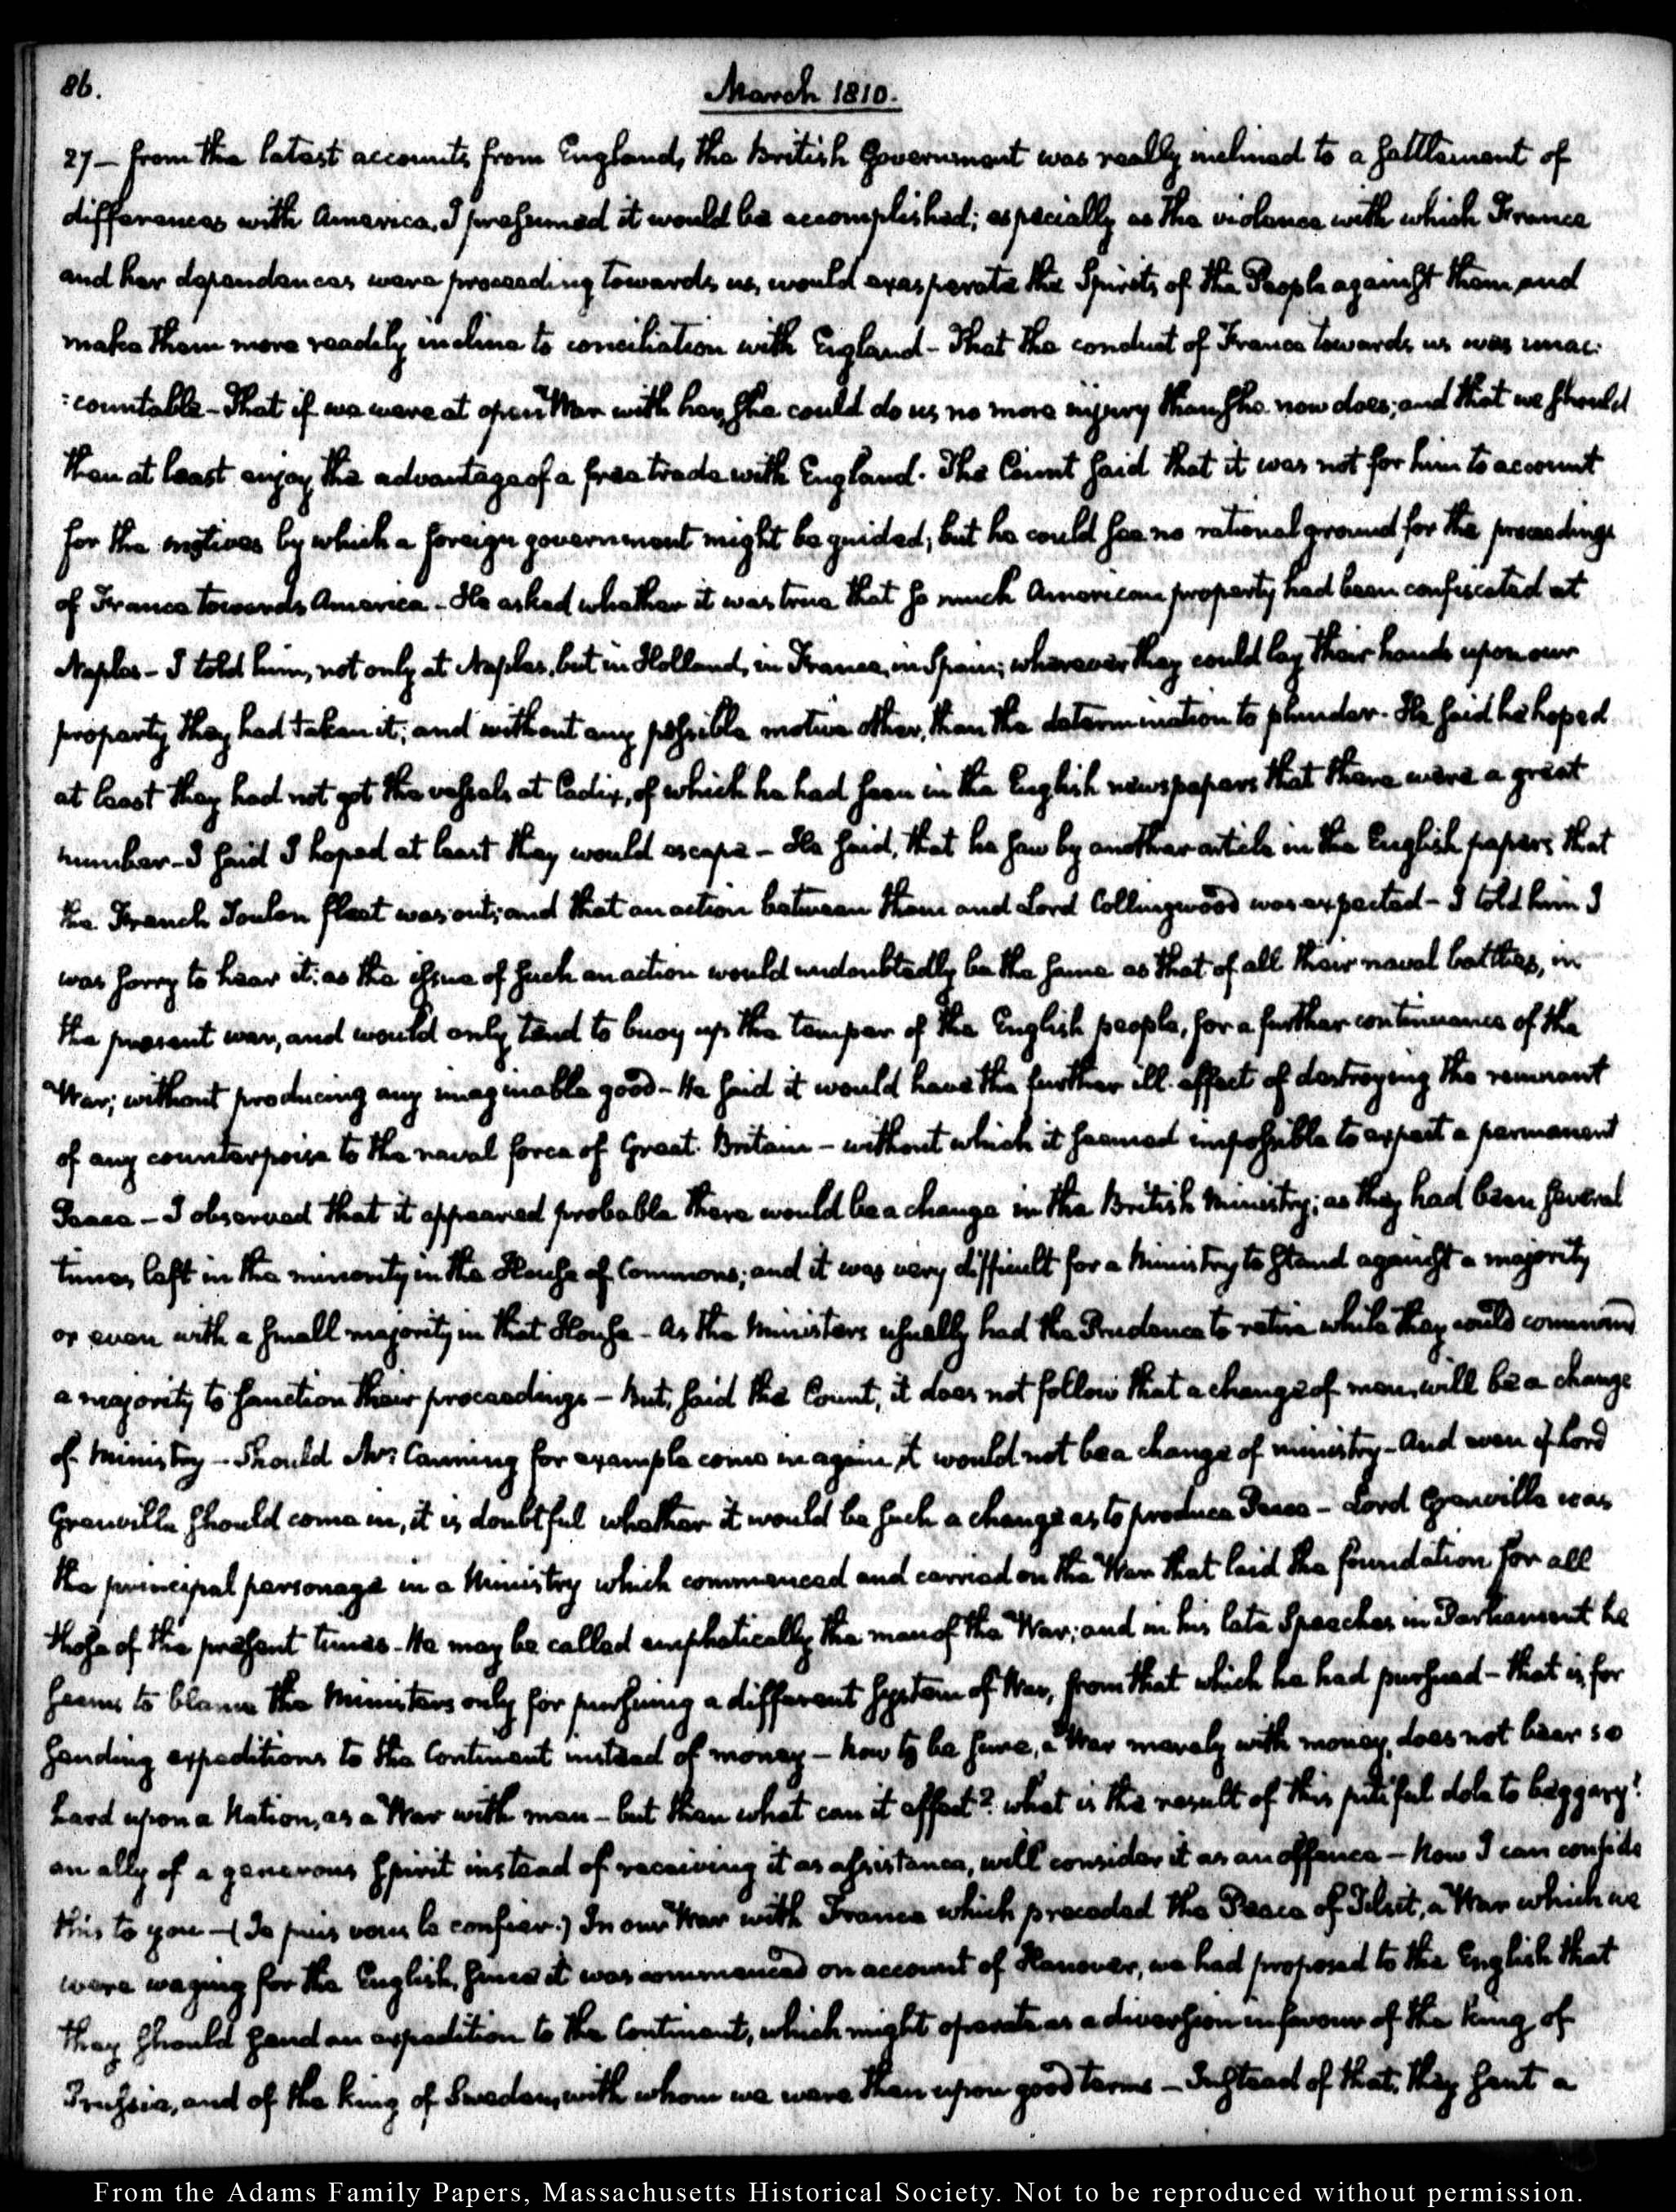 86.
March 1810.
27 — from the latest accounts from England, the British Government was really inclined to a settlement of
differences with America, I presumed it would be accomplished; especially as the violence with which France
and her dependances were proceeding towards us, would exasperate the Spirits of the People against them, and
make them more readily incline to conciliation with England - That the conduct of France towards us was unac-
:countable - That if we were at open War with her, she could do us no more injury than she now does; and that we should
then at least enjoy the advantage of a free trade with England. The Count said that it was not for him to account
for the motives by which a foreign government might be guided; but he could see no rational ground for the proceedings
of France towards America - He asked whether it was true that so much American property had been confiscated at
Naples - I told him, not only at Naples, but in Holland, in France, in Spain; wherever they could lay their hands upon our
property they had taken it; and without any possible motive other, than the determination to plunder. He said he hoped
at least they had not got the vessels at Cadix, of which he had seen in the English newspapers that there were a great
number - I said I hoped at least they would escape - He said, that he saw by another article in the English papers that
the French Toulon fleet was out; and that an action between them and Lord Collingwood was expected - I told him I
was sorry to hear it: as the issue of such an action would undoubtedly be the same as that of all their naval battles, in
the present war, and would only tend to buoy up the temper of the English people, for a further continuance of the
War; without producing any imaginable good - He said it would have the further ill effect of destroying the remnant
of any counterpoise to the naval force of Great Britain - without which it seemed impossible to expect a permanent
Peace - I observed that it appeared probable there would be a change in the British Ministry; as they had been several
times left in the minority in the House of Commons; and it was very difficult for a Ministry to stand against a majority
or even with a small majority in that House - As the Ministers usually had the Prudence to retire while they could command
a majority to sanction their proceedings - But, said the Count, it does not follow that a change of men, will be a change
of Ministry - Should Mr: Canning for example come in again, it would not be a change of ministry - And even if Lord
Grenville should come in, it is doubtful whether it would be such a change as to produce Peace - Lord Grenville was
the principal personage in a Ministry which commenced and carried on the War that laid the foundation for all
those of the present times - He may be called emphatically the man of the War; and in his late Speeches in Parliament he
seems to blame the Ministers only for pursuing a different system of War, from that which he had pursued - that is, for
sending expeditions to the Continent instead of money - Now to be sure, a War merely with money, does not bear so
hard upon a Nation, as a War with men - but then what can it effect? what is the result of this pitiful dole to beggary?
an ally of a generous spirit instead of receiving it as assistance, will consider it as an offence - Now I can confide
this to you - (Je puis vous le confier.) In our War with France which preceded the Peace of Tilsit, a War which we
were waging for the English, since it was commenced on account of Hanover, we had proposed to the English that
they should send an expedition to the Continent, which might operate as a diversion in favour of the King of
Prussia, and of the King of Sweden, with whom we were then upon good terms - Instead of that, they sent a
From the Adams Family Papers, Massachusetts Historical Society. Not to be reproduced without permission.